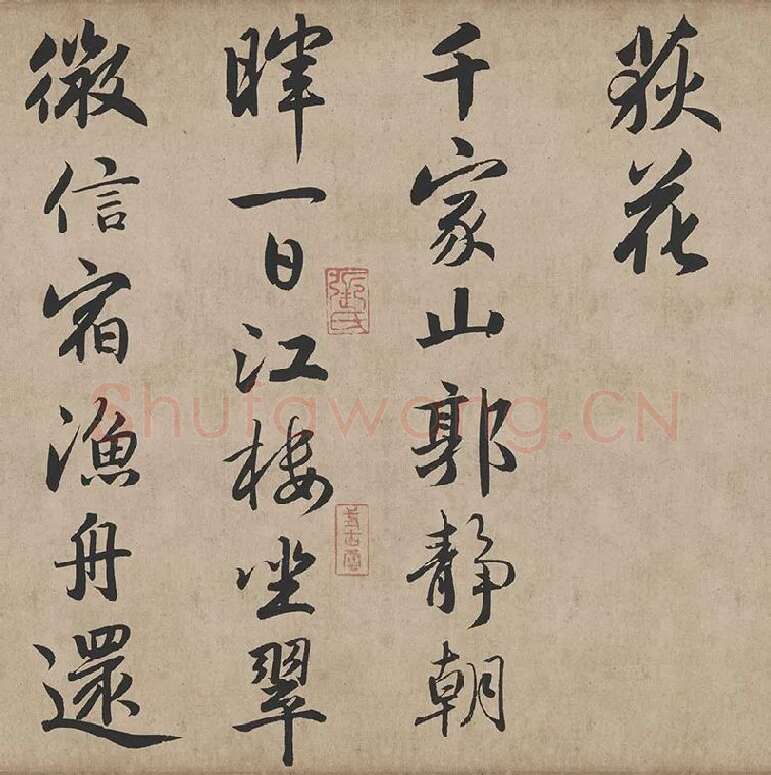 荻花
千家山郭静朝
暉一日江樓坐翠
微信宿漁舟還
Shufawang.CN